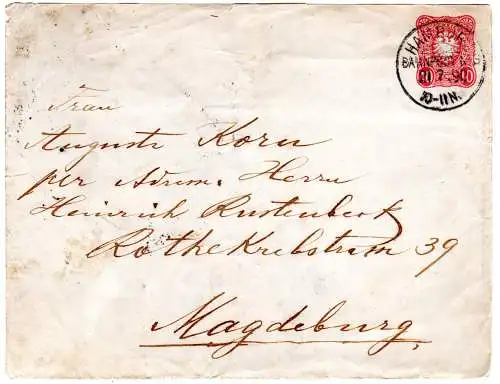 HANNOVER
BAHNPOST
7-90
10-11N.
10 10
Frau
Auguste Korn
per Adresse: Herrn
Heinrich Rustenbeck
Rothe Krebstrasse 39
Magdeburg.